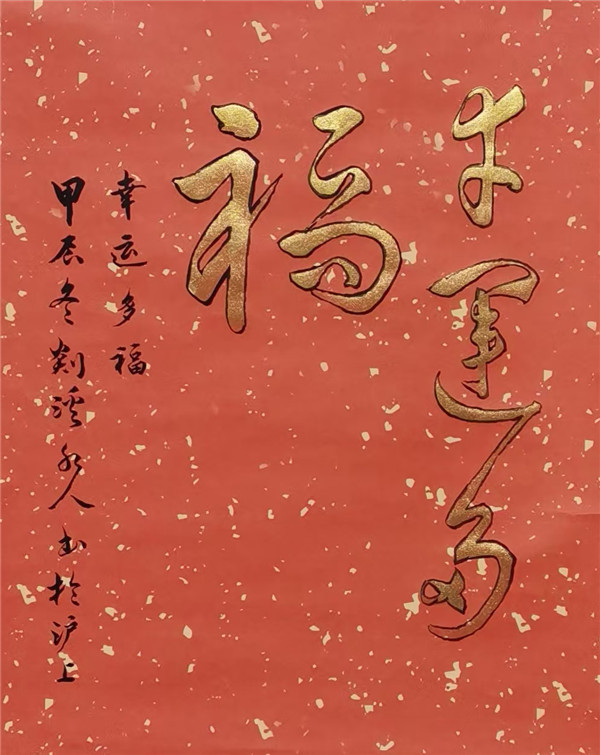 幸運多
福
幸运多福
甲辰冬剡溪人书於沪上